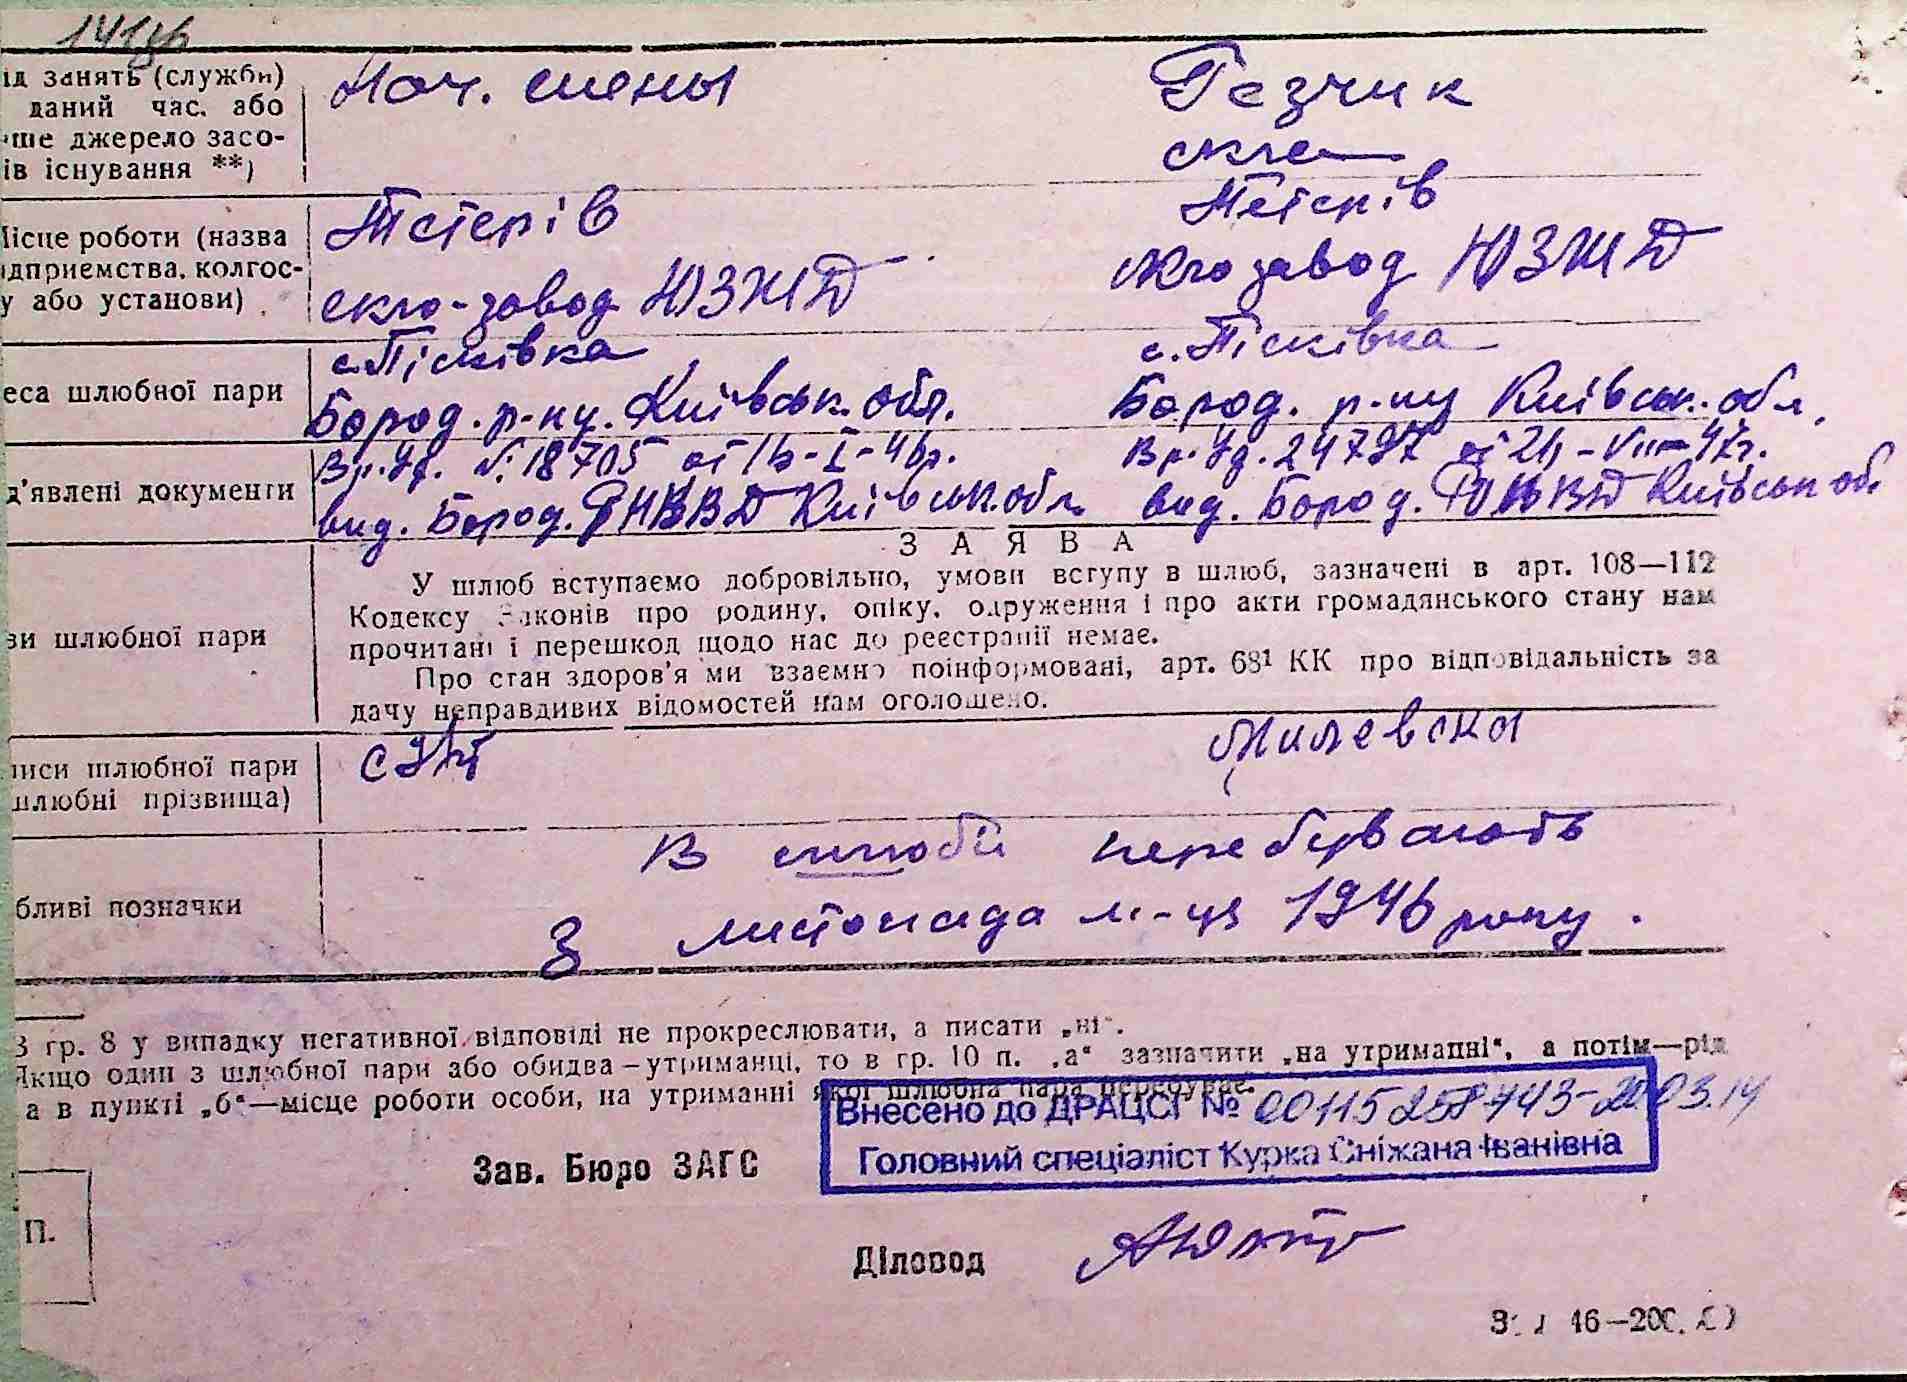 ід занять (служби)
даний час. або
ше джерело засо-
ів існування **)
Поч. смены
Резчик
скла
Місце роботи (назва
ідприємства, колгос-
у або установи)
Тетерів
скло-завод ЮЗЖД
Тетерів
склозавод ЮЗЖД
еса шлюбної пари
с. Пісківка
Бород. р-ну. Київськ. обл.
с. Пісківка
Бород. р-ну Київськ. обл.
д'явлені документи
Вр. Уд. №18705 от 16-I-46р.
вид. Бород. РНКВД Київськ. обл.
Вр. Уд. 24797
вид. Бород. РОНКВД Київськ обл
ЗАЯВА
зи шлюбної пари
У шлюб вступаємо добровільно, умови вступу в шлюб, зазначені в арт. 108—112
Кодексу Законів про родину, опіку, одруження і про акти громадянського стану нам
прочитані і перешкод щодо нас до реєстрації немає.
Про стан здоров'я ми взаємно поінформовані, арт. 68¹ КК про відповідальність за
дачу неправдивих відомостей нам оголошено.
писи шлюбної пари
шлюбні прізвища)
Милевска
бливі позначки
В шлюбі перебувають
З листопада м-ця 1946 року.
В гр. 8 у випадку негативної відповіді не прокреслювати, а писати „ні“.
Якщо один з шлюбної пари або обидва—утриманці, то в гр. 10 п. „а“ зазначити „на утриманні“, а потім—рід
а в пункті „б“—місце роботи особи, на утриманні якої шлюбна пара перебуває.
Внесено до ДРАЦСГ № 00115258743-20.03.14
Головний спеціаліст Курка Сніжана Іванівна
Зав. Бюро ЗАГС
П.
Діловод